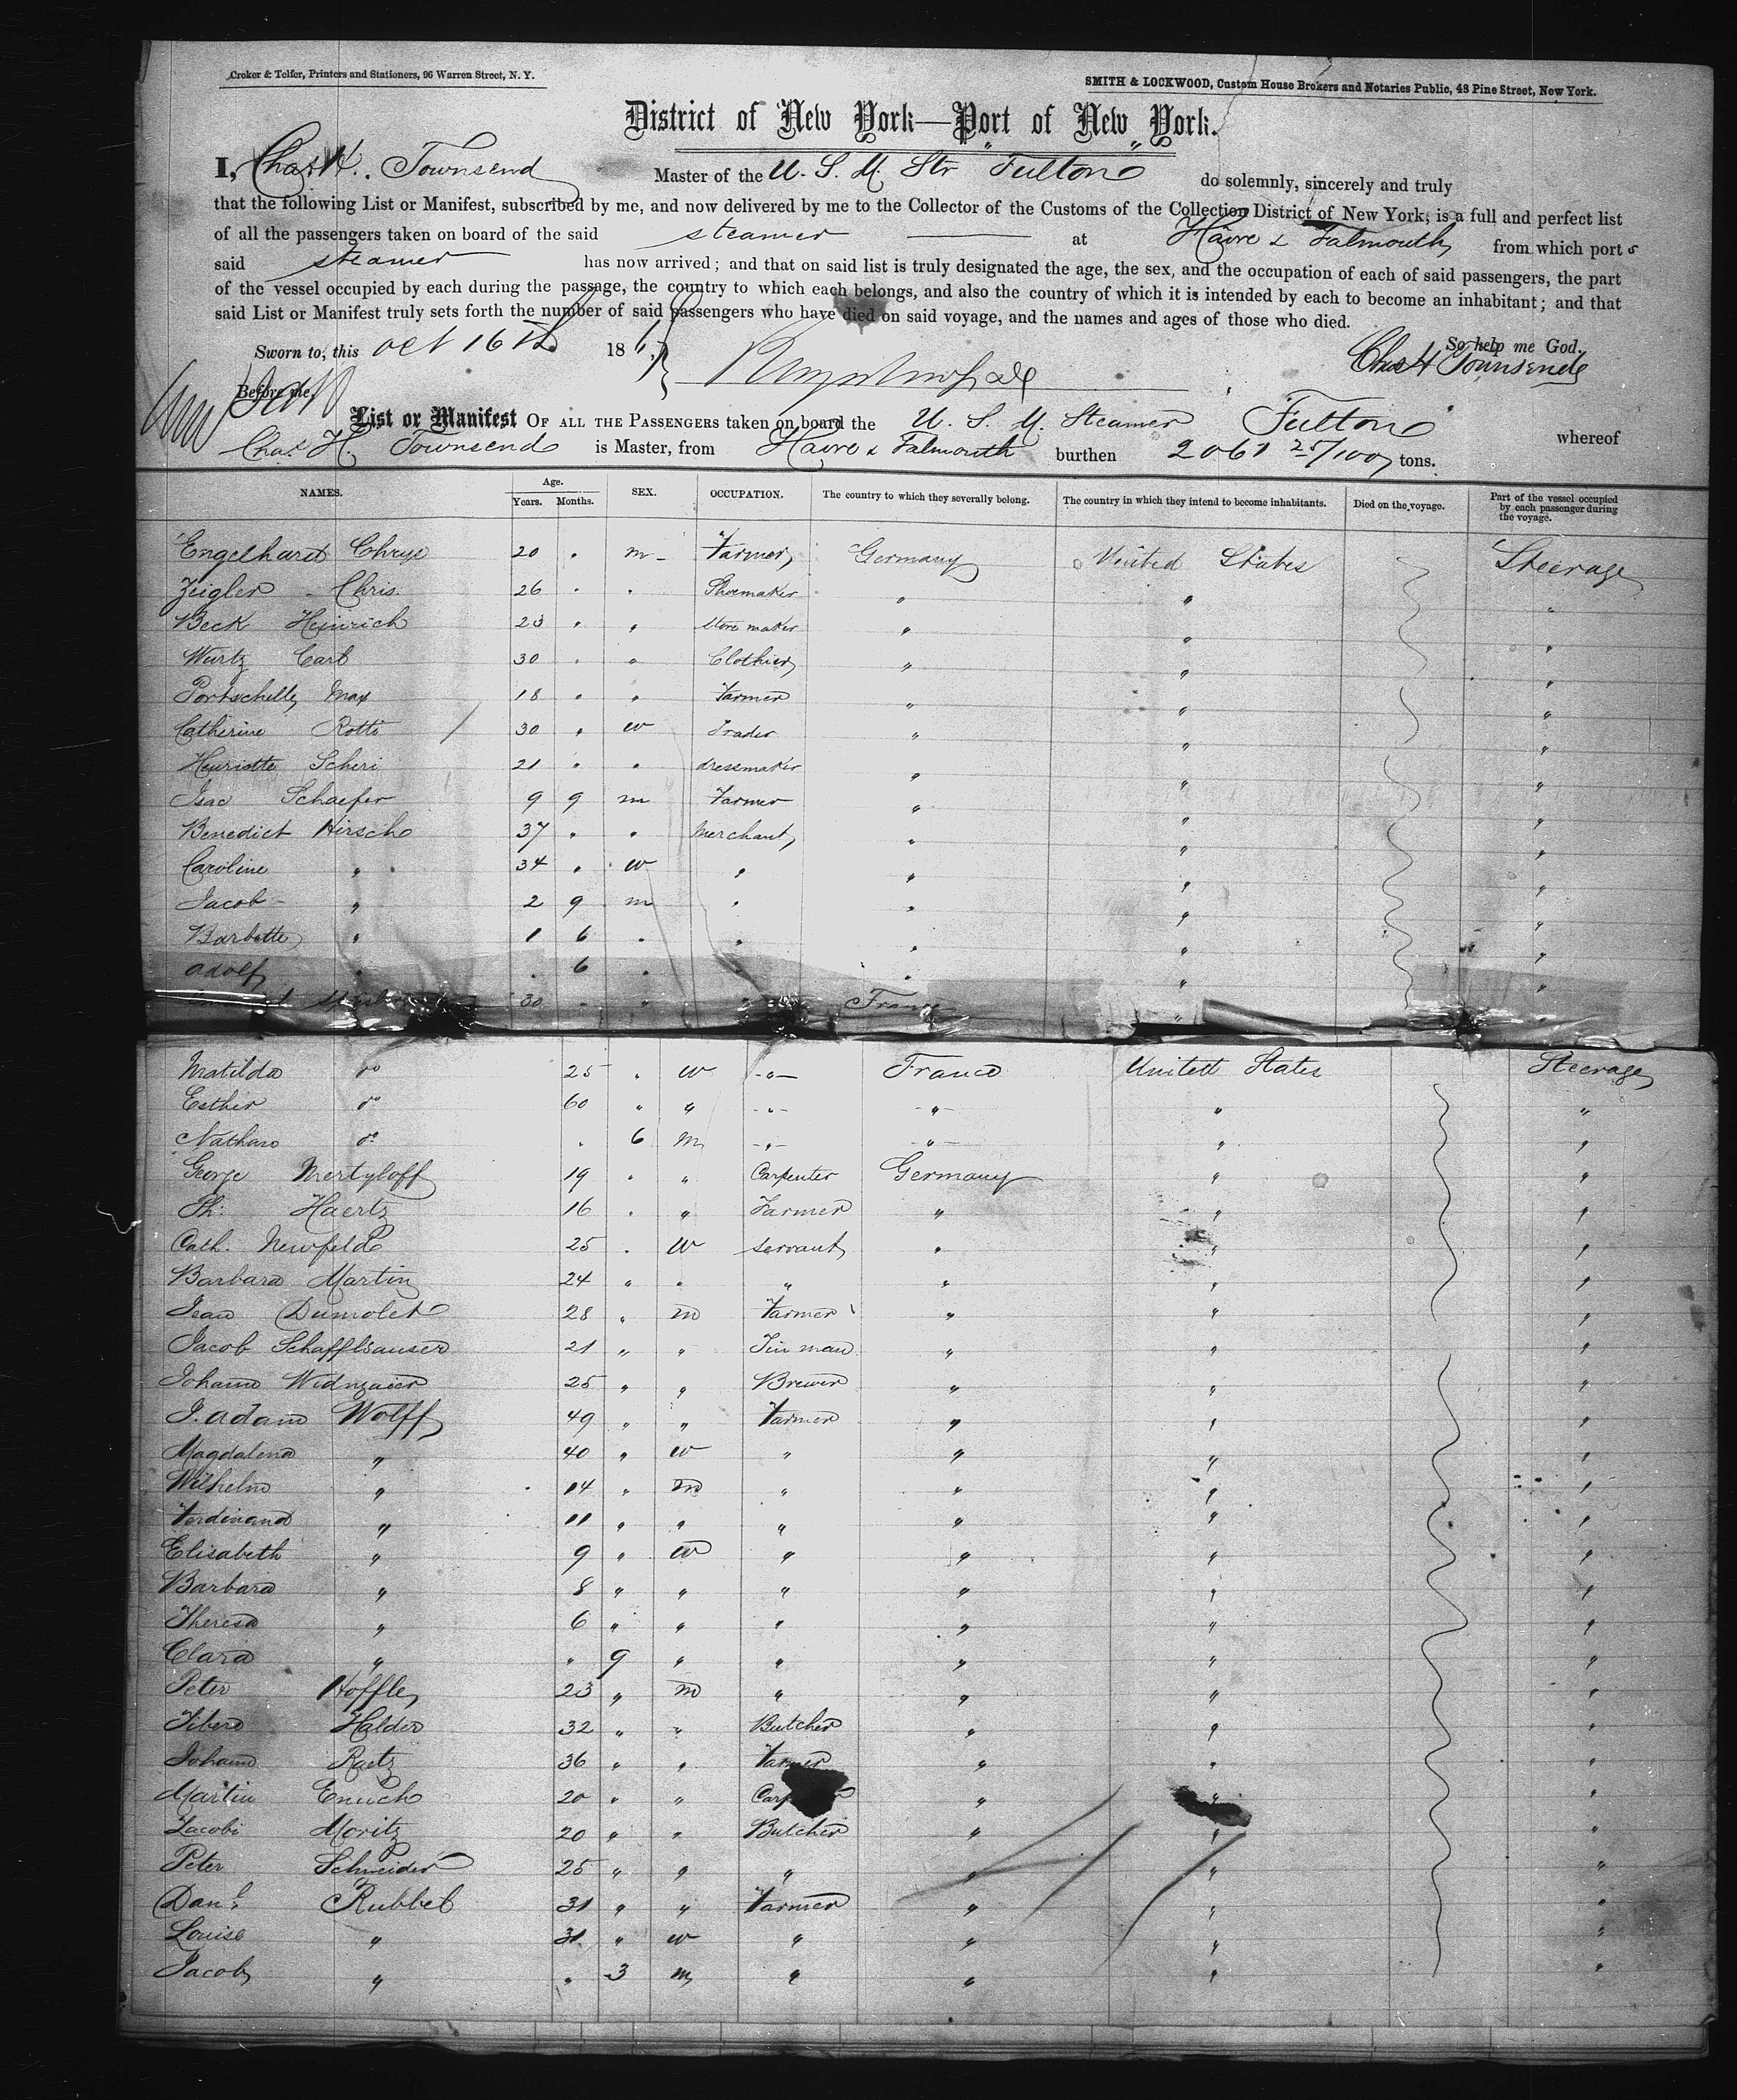 Croker & Telfer, Printers and Stationers, 96 Warren Street, N. Y.
SMITH & LOCKWOOD, Custom House Brokers and Notaries Public, 48 Pine Street, New York.
District of New York—Port of New York.
I, Chas H. Townsend Master of the U. S. M. Str "Fulton" do solemnly, sincerely and truly
that the following List or Manifest, subscribed by me, and now delivered by me to the Collector of the Customs of the Collection District of New York, is a full and perfect list
of all the passengers taken on board of the said steamer at Havre & Falmouth from which port s
said steamer has now arrived; and that on said list is truly designated the age, the sex, and the occupation of each of said passengers, the part
of the vessel occupied by each during the passage, the country to which each belongs, and also the country of which it is intended by each to become an inhabitant; and that
said List or Manifest truly sets forth the number of said passengers who have died on said voyage, and the names and ages of those who died.
Sworn to, this Oct 16th 186 So help me God.
Chas H Townsend
Before me,
List or Manifest OF ALL THE PASSENGERS taken on board the U. S. M. Steamer "Fulton" whereof
Chas. H. Townsend is Master, from Havre & Falmouth burthen 2061 25/100 tons.
NAMES. Age. Years. Months. SEX. OCCUPATION. The country to which they severally belong. The country in which they intend to become inhabitants. Died on the voyage. Part of the vessel occupied by each passenger during the voyage.
Engelhardt Chrys 20 . m Farmer Germany United States Steerage
Zeigler - Chris. 26 . . Shoemaker " " "
Beck Heinrich 23 " " store maker " " "
Wurtz Carl 30 . " Clothier " " "
Portschelly Max 18 . " Farmer " " "
Catherine Rotti 30 " w Trader " " "
Henriette Scheri 21 " " dressmaker " " "
Isac Schaefer 9 9 m Farmer " " "
Benedict Hirsch 37 . " Merchant " " "
Caroline " 34 . w " " " "
Jacob " 2 9 m " " " "
Barbette " 1 6 . " " " "
Adolf " . 6 . " " " "
30 " " " France "
Matilda do 25 . w -"- France Unitett States Steerage
Esther do 60 " " -"- -"- " "
Nathan do . 6 m -"- -"- " "
George Mertyloff 19 . " Carpenter Germany " "
Th: Haertz 16 . " Farmer " " "
Cath. Newfeld 25 . w servant " " "
Barbara Martin 24 " " " " " "
Jean Dumolet 28 " m Farmer " " "
Jacob Schaffhauser 21 " " Tin man " " "
Johann Widmaier 25 " " Brewer " " "
J. Adam Wolff 49 " " Farmer " " "
Magdalena " 40 " w " " " "
Wilhelm " 14 " m " " " "
Ferdinand " 11 " " " " " "
Elisabeth " 9 " w " " " "
Barbara " 8 " " " " " "
Theresa " 6 " " " " " "
Clara " " 9 " " " " "
Peter Hoffle 23 " m " " " "
Halder 32 " " Butcher " " "
Johann Raetz 36 " " Farmer " " "
Martin Enuch 20 " " " " "
Jacobi Moritz 20 " " Butcher " " "
Peter Schneider 25 " " " " " "
Danl. Rubbel 31 " " Farmer " " "
Louise " 31 " w " " " "
Jacob " " 3 m " " " "